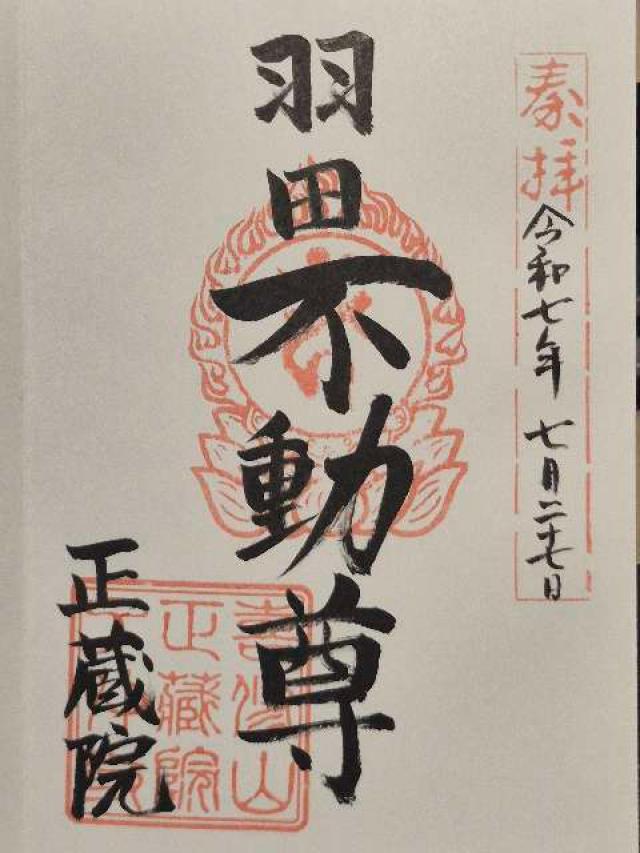 奉拝
令和七年 七月二十七日
羽田不動尊
正蔵院
正藏院